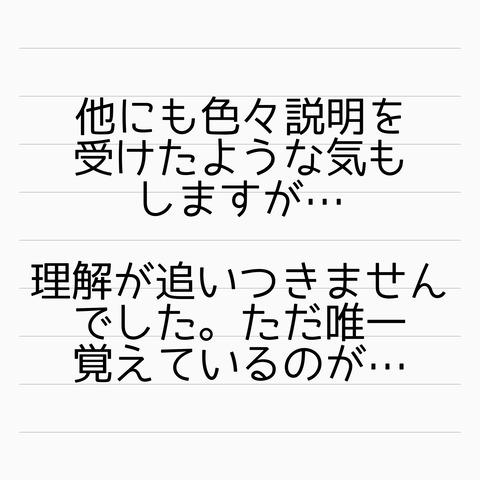 他にも色々説明を
受けたような気も
しますが…
理解が追いつきません
でした。ただ唯一
覚えているのが…